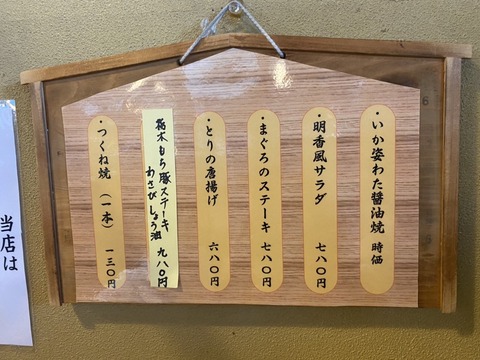 ・いか姿わた醤油焼 時価
・明香風サラダ 七八〇円
・まぐろのステーキ 七八〇円
・とりの唐揚げ 六八〇円
栃木もち豚ステーキ
わさびしょう油 九八〇円
・つくね焼（一本） 一三〇円
当店は